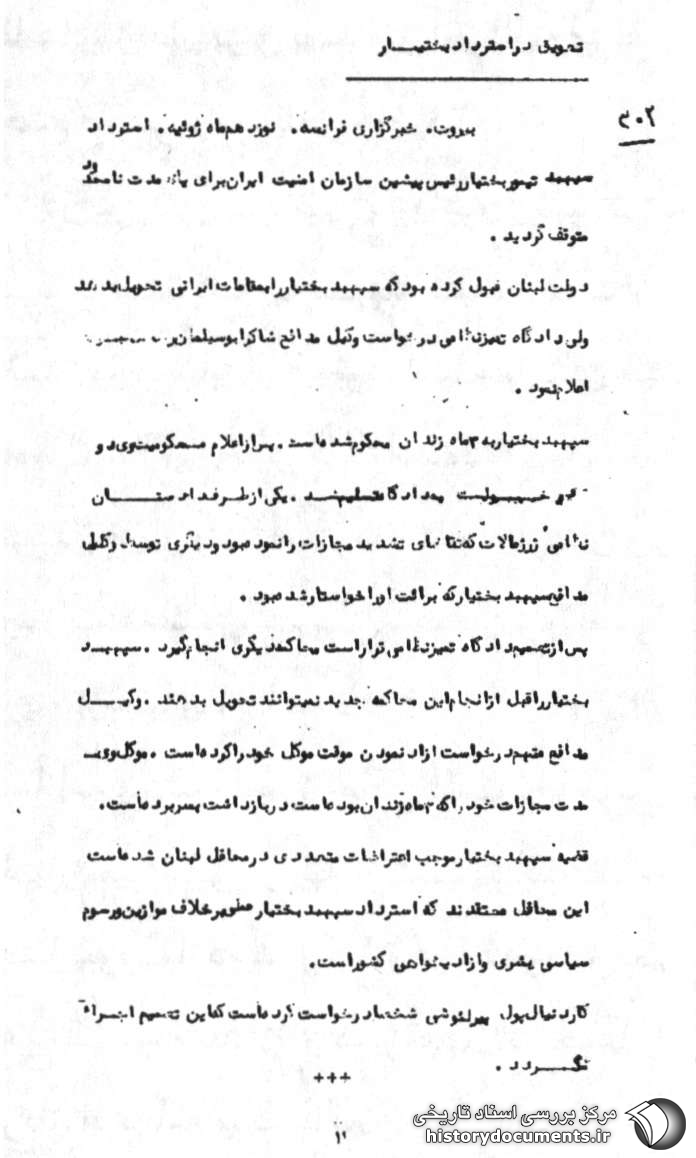 تعویق در استرداد بختیار
۳۰۲
بیروت. خبرگزاری فرانسه. نوزدهم ماه ژوئیه. استرداد
سپهبد تیمور بختیار رئیس پیشین سازمان امنیت ایران برای یک مدت نامحدود
متوقف گردید.
دولت لبنان قبول کرده بود که سپهبد بختیار را بمقامات ایرانی تحویل بدهد
ولی دادگاه تمیز نظامی درخواست وکیل مدافع شاکر ابوسلیمان را
اعلام نمود.
سپهبد بختیار به ۹ ماه زندان محکوم شده است. پس از اعلام محکومیت وی دو
به دادگاه تسلیم شد. یکی از طرف دادستان
نظامی ژرژ مالات که تقاضای تشدید مجازات را نموده بود و دیگری توسط وکیل
مدافع سپهبد بختیار که برائت او را خواستار شده بود.
پس از تصمیم دادگاه تمیز نظامی قرار است محاکمه دیگری انجام گیرد. سپهبد
بختیار را قبل از انجام این محاکمه جدید نمیتوانند تحویل بدهند. وکیل
مدافع متهم درخواست ازاد نمودن موقت موکل خود را کرده است. موکل وی
مدت مجازات خود را که ۹ ماه زندان بوده است در بازداشت بسر برده است.
قضیه سپهبد بختیار موجب اعتراضات متعددی در محافل لبنان شده است
این محافل معتقدند که استرداد سپهبد بختیار برخلاف موازین و رسوم
سیاسی بشری و ازادیخواهی کشور است.
کاردینال پول پیر لئوشی شخصا درخواست کرده است که این تصمیم اجراء
نگردد.
+++
۱۰
مرکز بررسی اسناد تاریخی
historydocuments.ir